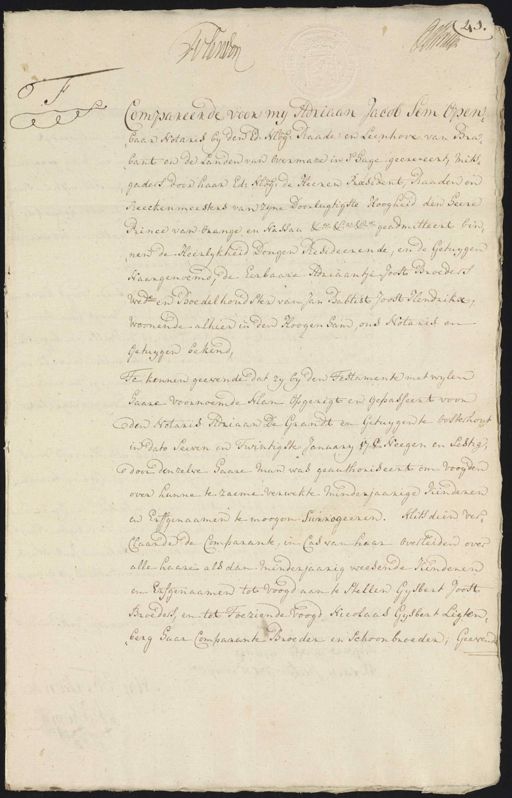 43.
F
Compareerde voor my Adriaan Jacob Sem Open,
baar Notaris by den Ed. Mog. Raade en Leenhove van Bra,
bant en de Landen van Overmaze in 's Hage geexerceert, mits,
gaders door haar Ed. Mog. de Heeren President, Raaden en
Reeckenmeesters van Zyne Doorlugtigste Hoogheid den Heere
Prince van Orange en Nassau &ca &ca &ca geadmitteert bin,
nen de Heerlykheid Dongen Resideerende, en de Getuygen
Naargenoemd, de Eerbaare Adriaantje Joost Broeders
Wede en Boedelhoudster van Jan Babtist Joost Hendrikx,
woonende alhier in den Hoogen Ham, ons Notaris en
Getuygen bekend,
Te kennen geevende dat zy by den Testamente met wylen
haare voornoemde Man opgerigt en gepasseert voor
den Notaris Adriaan De Grandt en Getuygen te Oosterhout
in dato Seeven en Twintigste January 17c Neegen en Sestig,
door denzelve haare Man was geauthoriseert om Voogden
over hunne te zaeme verwekte minderjaarige Kinderen
en Erffgenaamen te moogen Surrogeeren. Mits dien ver,
Claarde de Comparante, in Cas van haar overleiden over
alle haare als dan minderjaarig weesende Kinderen
en Erfgenaamen tot Voogd aan te stellen Gysbert Joost
Broeders, en tot Toeziende Voogd Nicolaas Gysbert Ligten,
berg haar Comparante Broeder en Schoonbroeder, Geevende